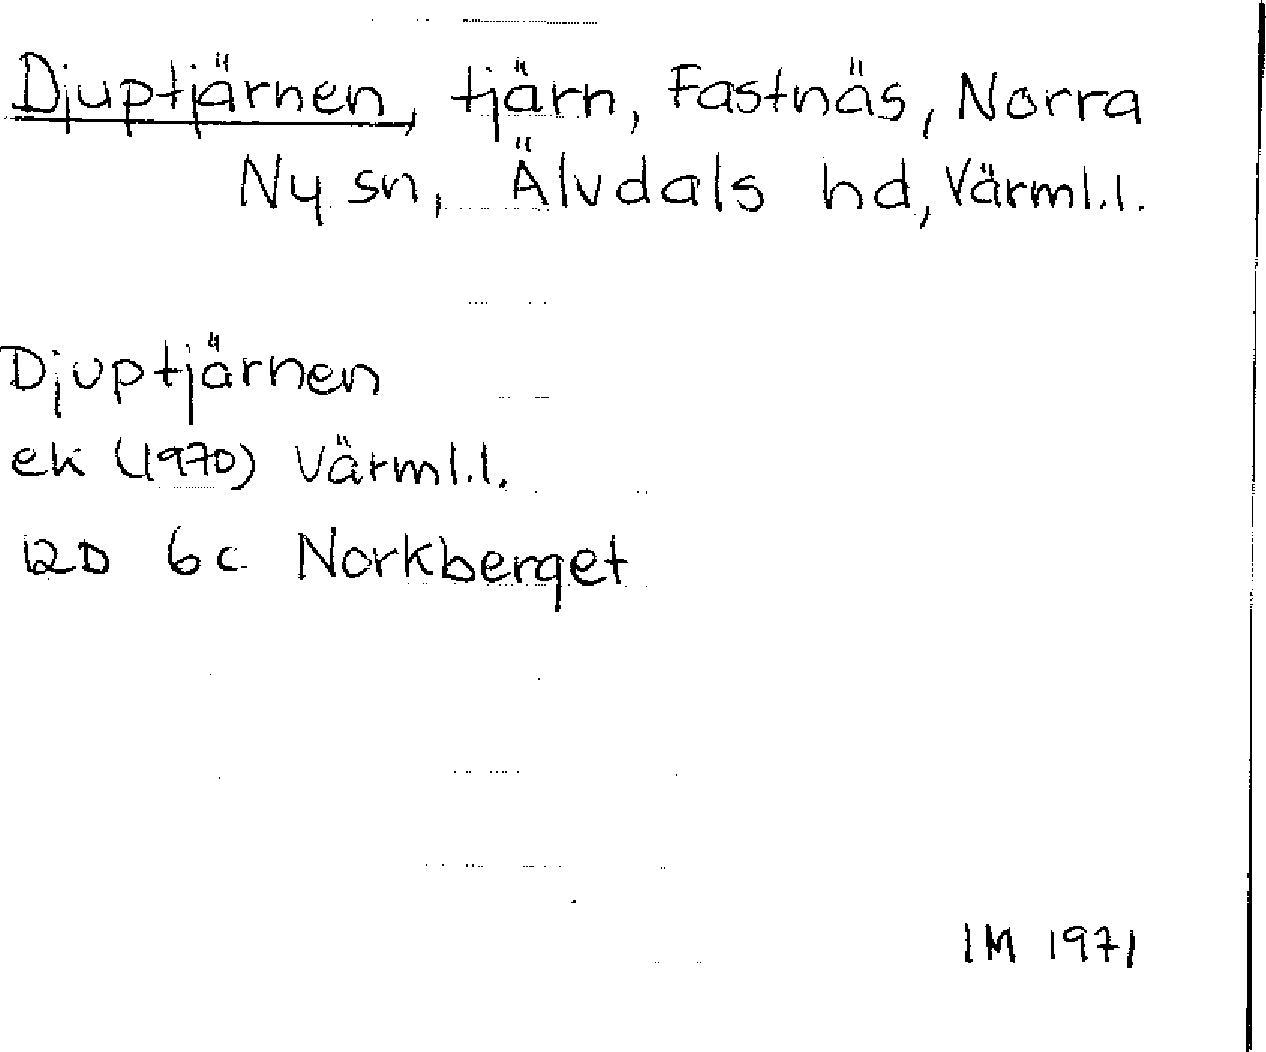 Djuptjärnen, tjärn, Fastnäs, Norra
Ny sn, Älvdals hd, Värml.l.
Djuptjärnen
ek (1970) Värml.l.
12D 6c Norkberget
IM 1971